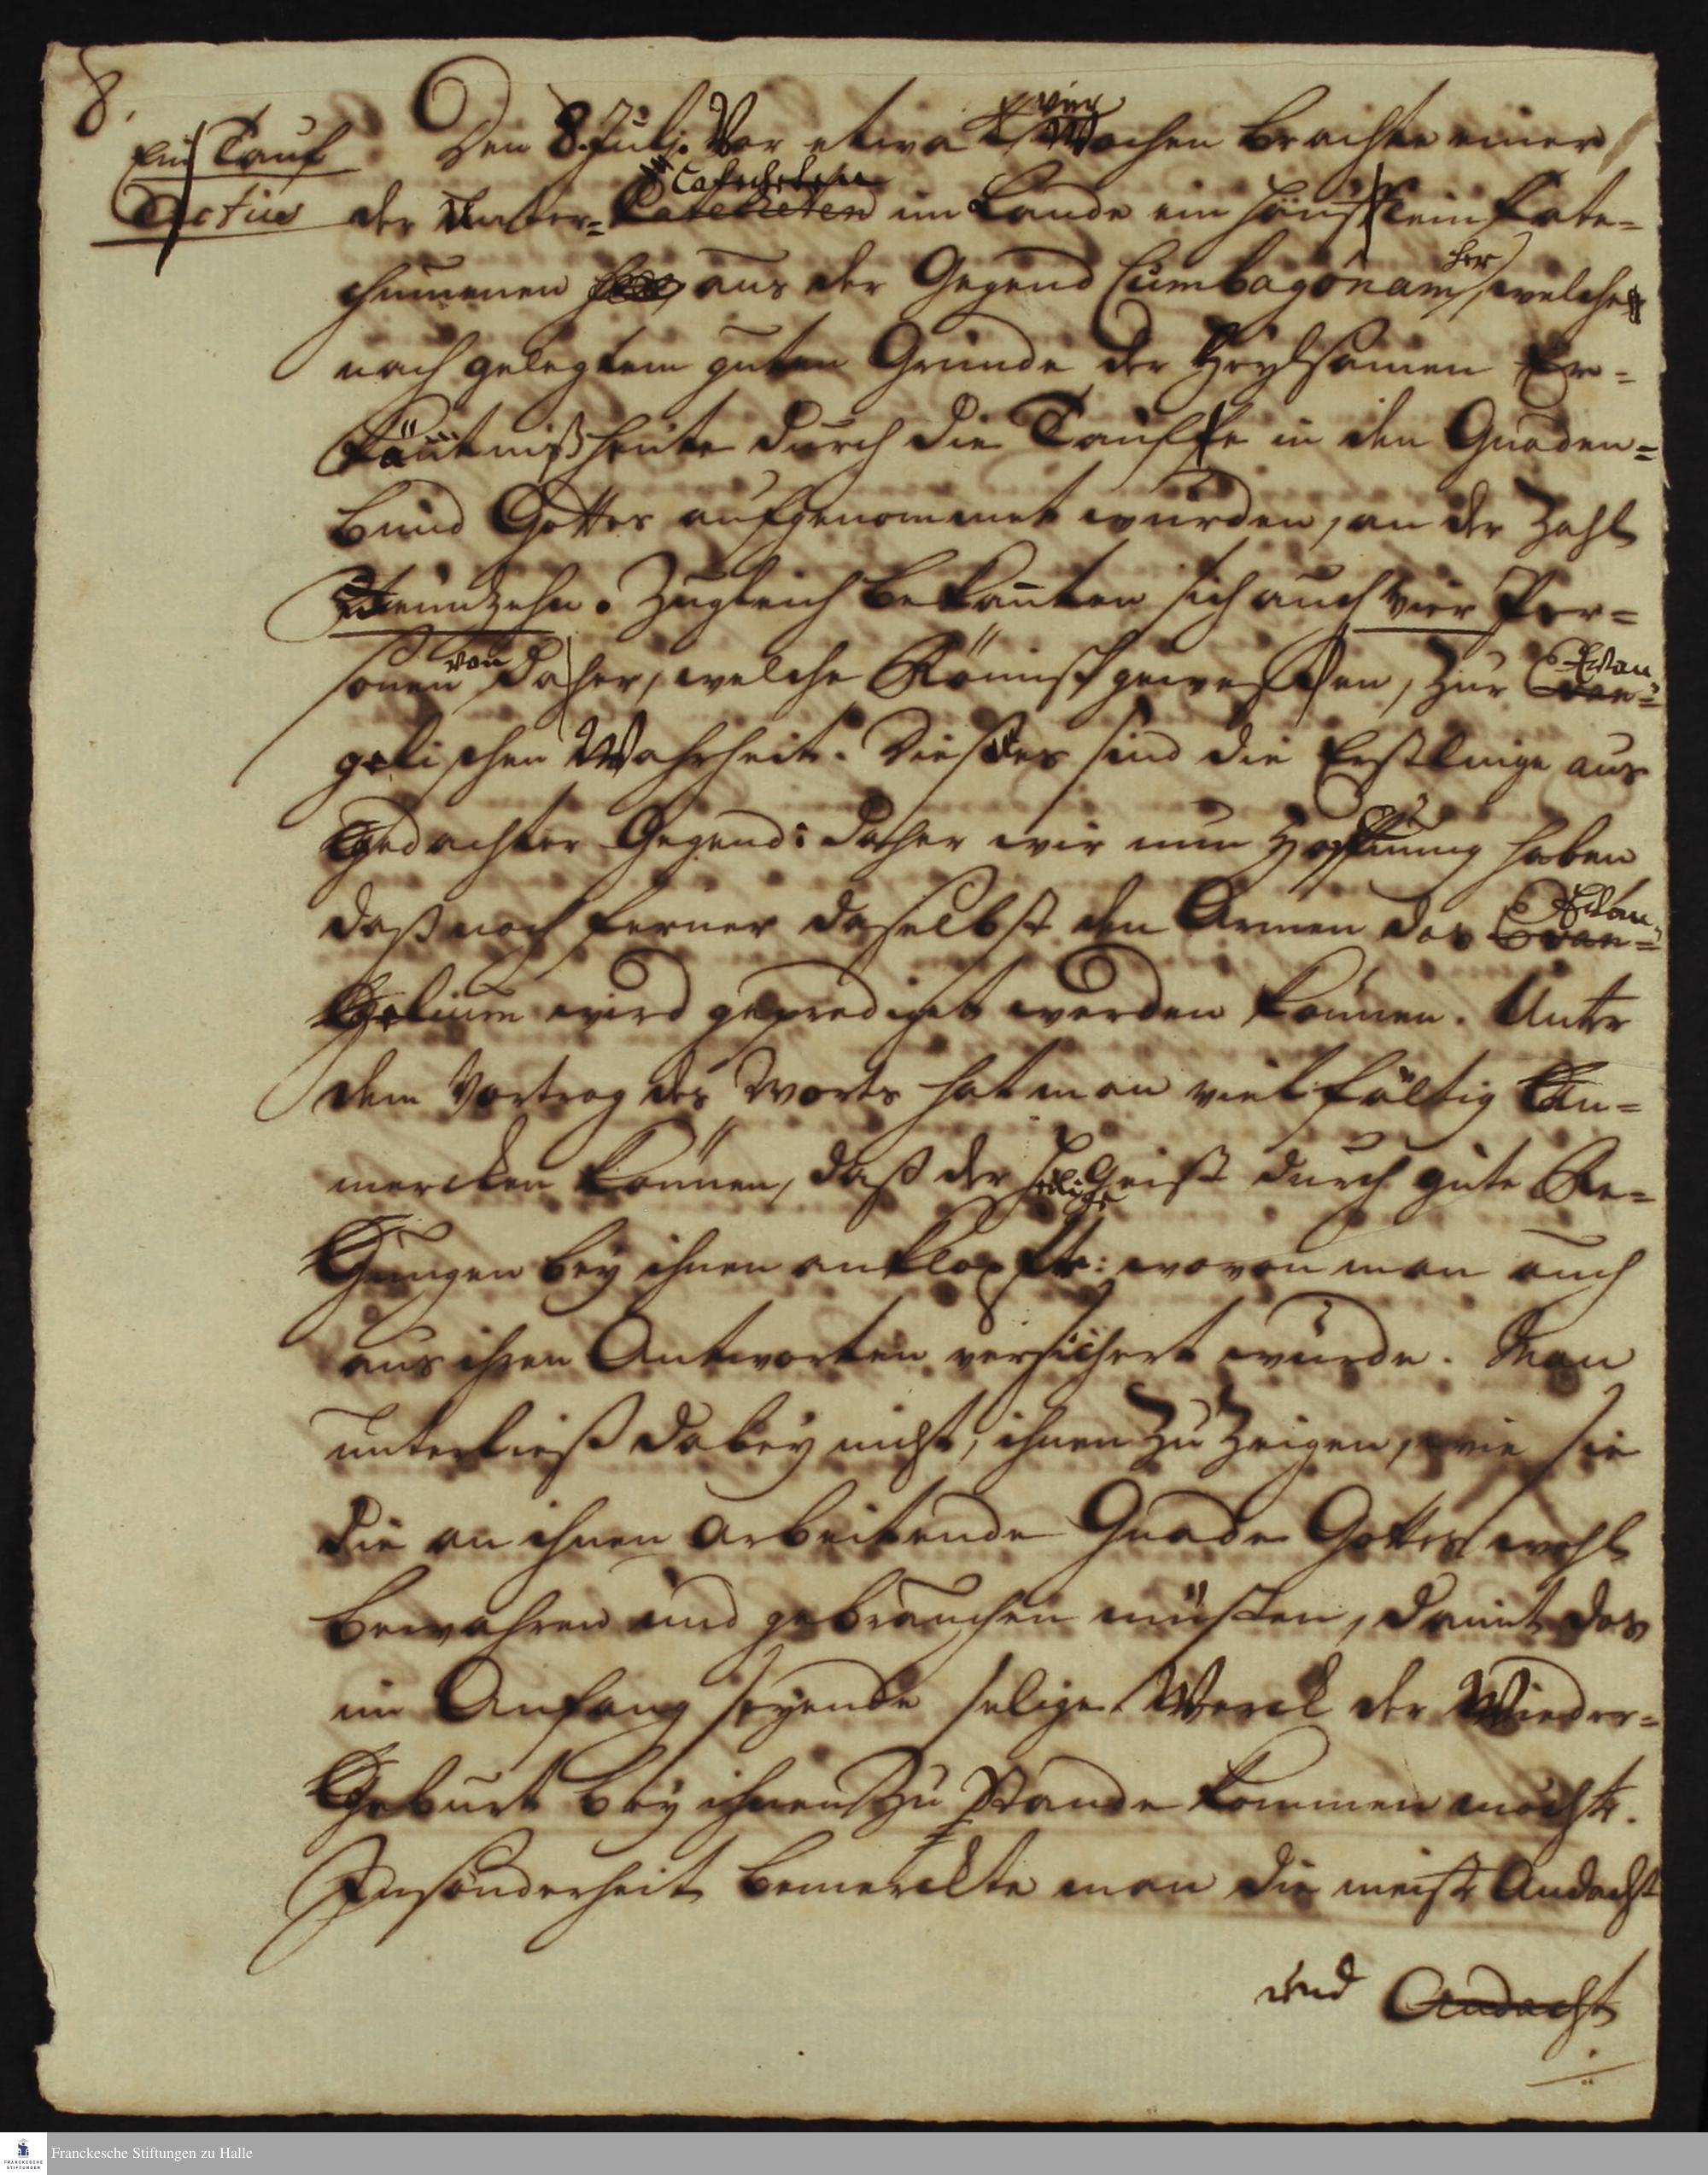 8.
Ein Tauf
Actus
Den 8. Julj. Vor etwa vier Wochen brachte einer
der Unter= Catecheten Catecheten im Lande ein Häufflein Cate=
chumenen aus der Gegend Cumbagonam her, welche
nach gelegtem guten Grunde der Heylsamen Er=
käntniß heute durch die Tauffe in den Gnaden=
bund Gottes aufgenommen wurden, an der Zahl
Neunzehn. Zugleich bekanten sich auch vier Per=
sonen von daher, welche Römisch gewesen, zur Evan=
gelischen Wahrheit. Dieses sind die Erstlinge aus
gedachter Gegend: daher wir nun Hoffnung haben
daß noch ferner daselbst den Armen das Evan=
gelium wird geprediget werden können. Unter
dem Vortrag des Worts hat man vielfältig An=
mercken können, daß der heilige Geist durch gute Re=
gungen bey ihnen anklopfte: wovon man auch
aus ihren Antworten versichert wurde. Man
unterließ dabey nicht, ihnen zu zeigen, wie sie
die an ihnen arbeitende Gnade Gottes wohl
bewahren und gebrauchen müsten, damit das
im Anfang seyende selige Werck der Wieder=
Geburt bey ihnen zu Stande kommen möchte.
Insonderheit bemerckte man die meiste Andacht
und Andacht
Franckesche Stiftungen zu Halle
FRANCKESCHE STIFTUNGEN